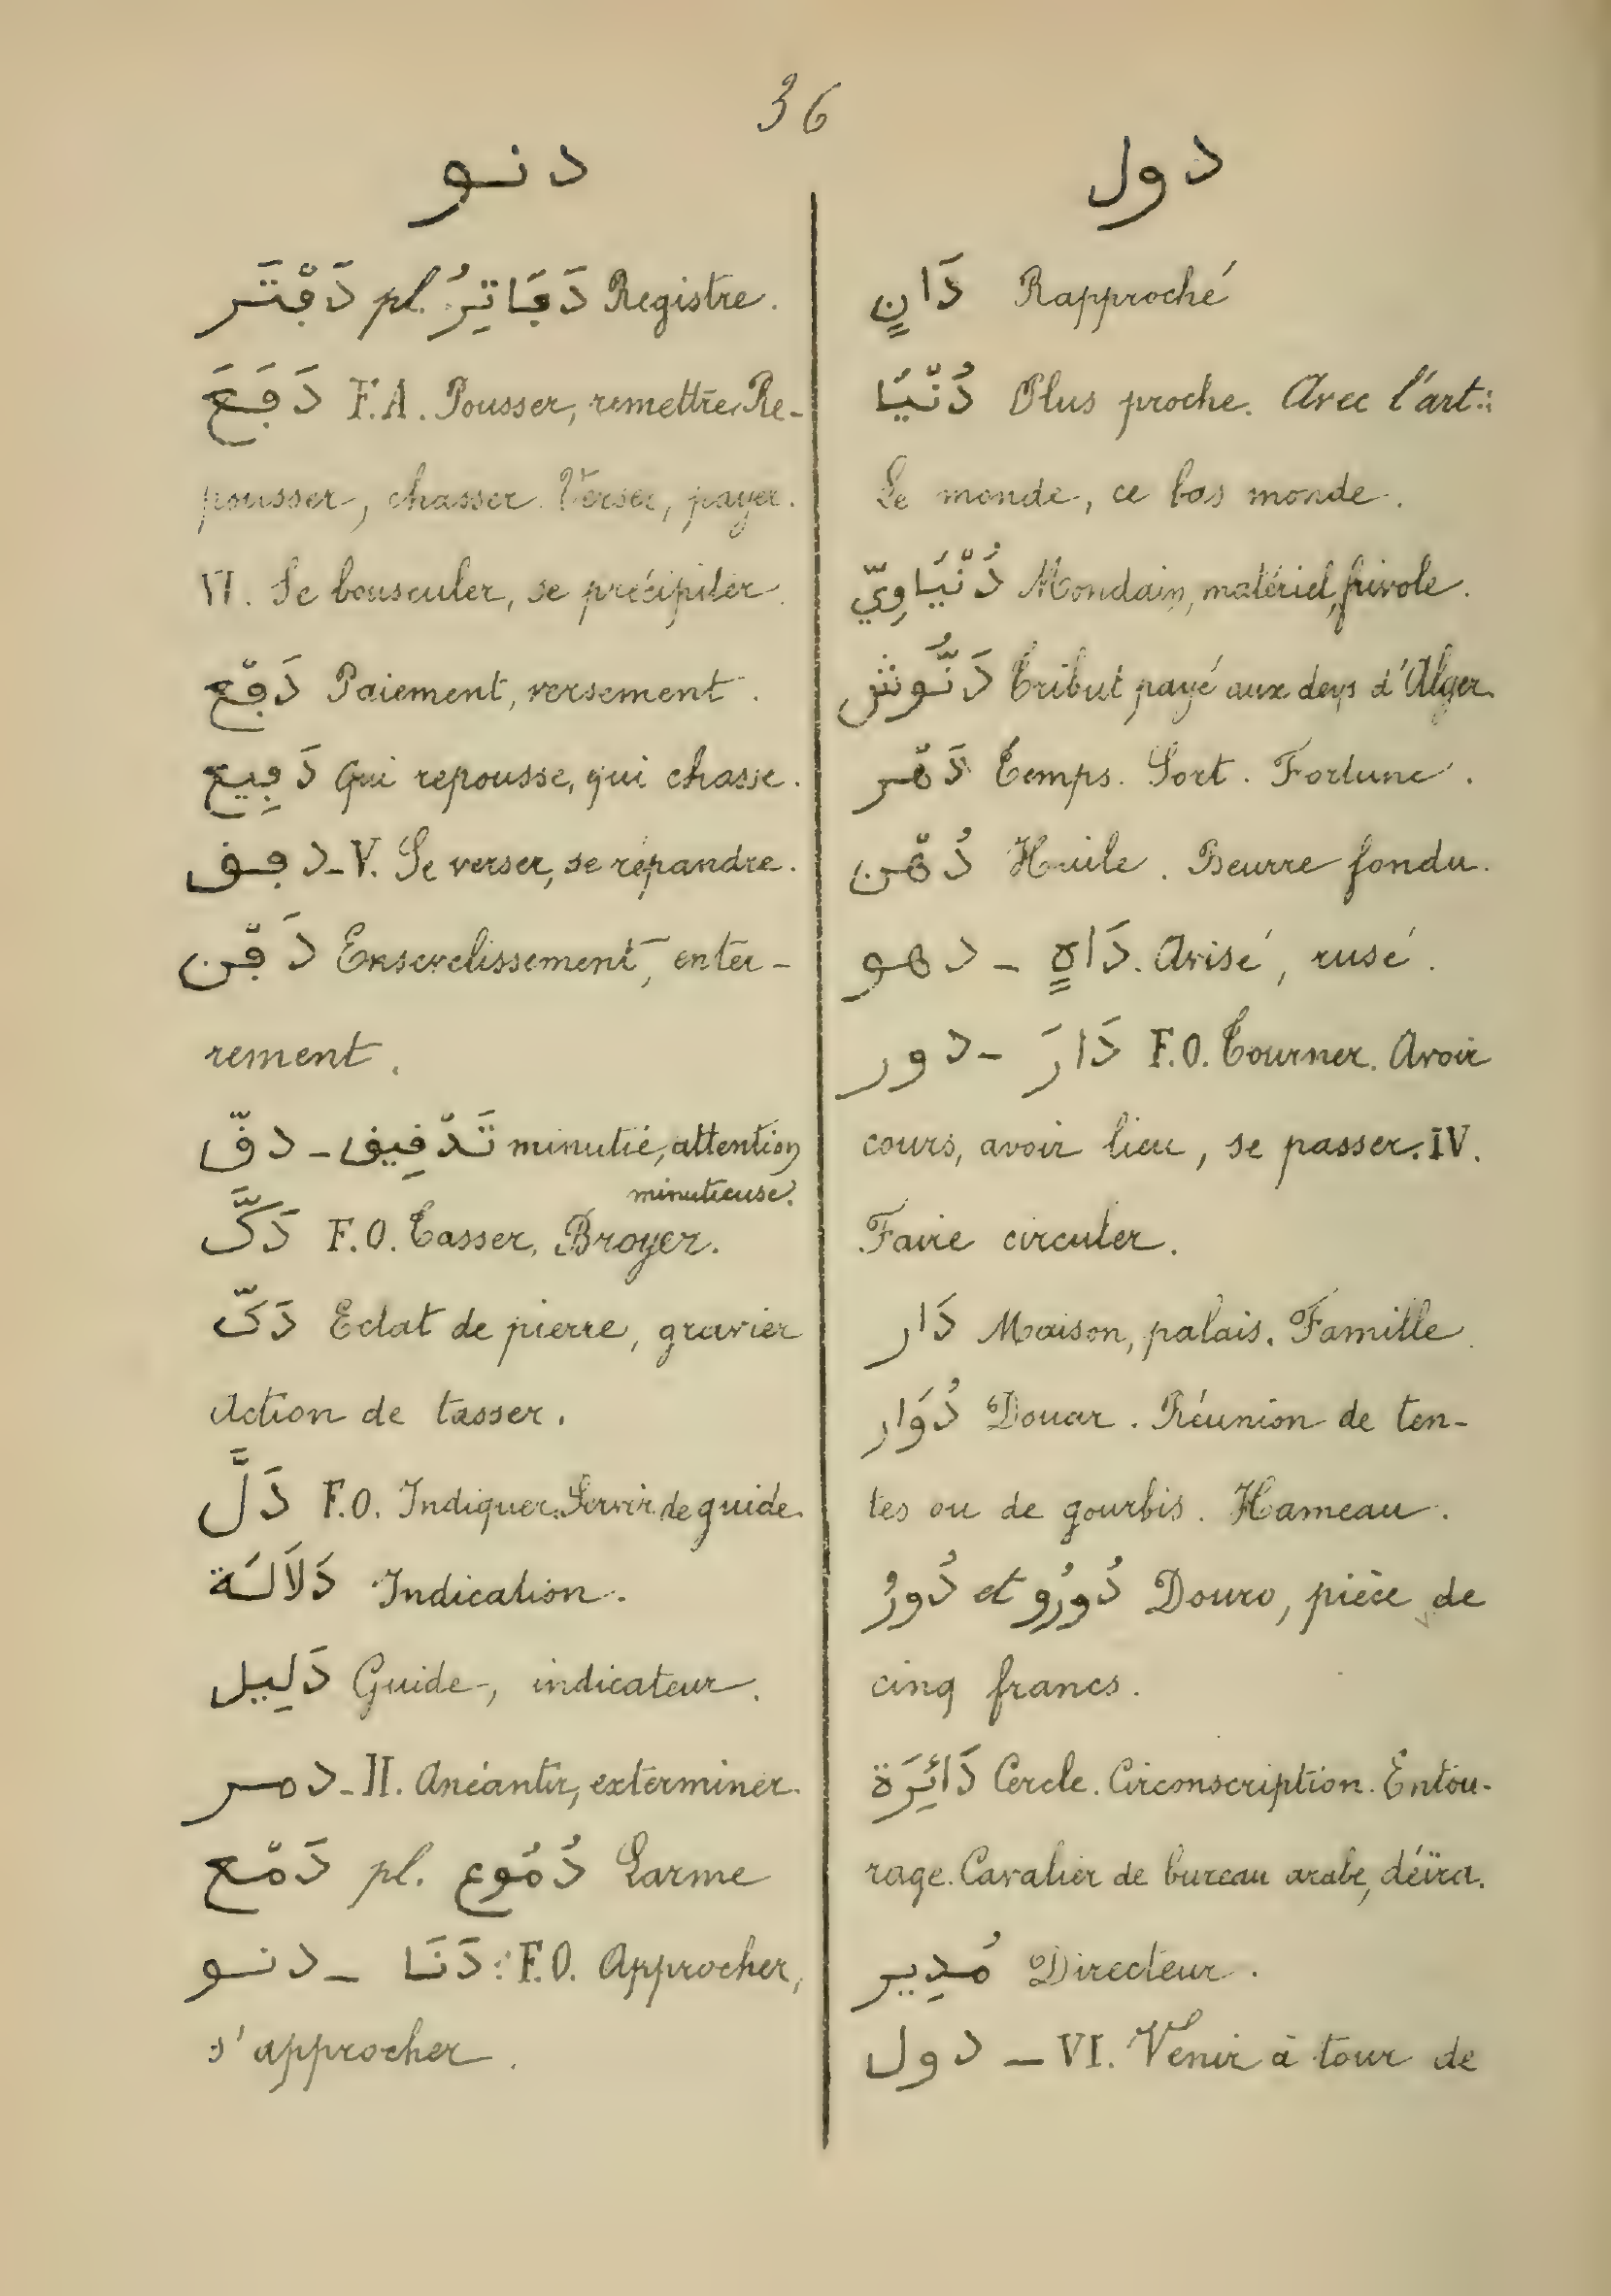 36
دنو
دَفْتَر pl. دَفَاتِرُ Registre.
دَفَعَ F.A. Pousser, remettre. Re-
pousser, chasser. Verser, payer.
VI. Se bousculer, se précipiter.
دَفْع Paiement, versement.
دَفِيع Qui repousse, qui chasse.
دفق - V. Se verser, se répandre.
دَفْن Ensevelissement, enter-
rement.
دقّ - تَدْقِيق minutie, attention
minutieuse.
دَكَّ F.O. Tasser, Broyer.
دَكّ Eclat de pierre, gravier
Action de tasser.
دَلَّ F.O. Indiquer. Servir de guide.
دَلَالَة Indication.
دَلِيل Guide, indicateur.
دمر - II. Anéantir, exterminer.
دَمْع pl. دُمُوع Larme
دنو - دَنَا : F.O. Approcher,
s'approcher.
دول
دَانٍ Rapproché
دُنْيَا Plus proche. Avec l'art.:
Le monde, ce bas monde.
دُنْيَاوِيّ Mondain, matériel, frivole.
دَنُّوش Tribut payé aux deys d'Alger.
دَهْر Temps. Sort. Fortune.
دُهْن Huile. Beurre fondu.
دهو - دَاهٍ. Avisé, rusé.
دور - دَارَ F.O. Tourner. Avoir
cours, avoir lieu, se passer. IV.
Faire circuler.
دَار Maison, palais. Famille.
دُوَار Douar. Réunion de ten-
tes ou de gourbis. Hameau.
دُورُ et دُورُو Douro, pièce de
cinq francs.
دَائِرَة Cercle. Circonscription. Entou-
rage. Cavalier de bureau arabe, déïra.
مُدِير Directeur.
دول - VI. Venir à tour de